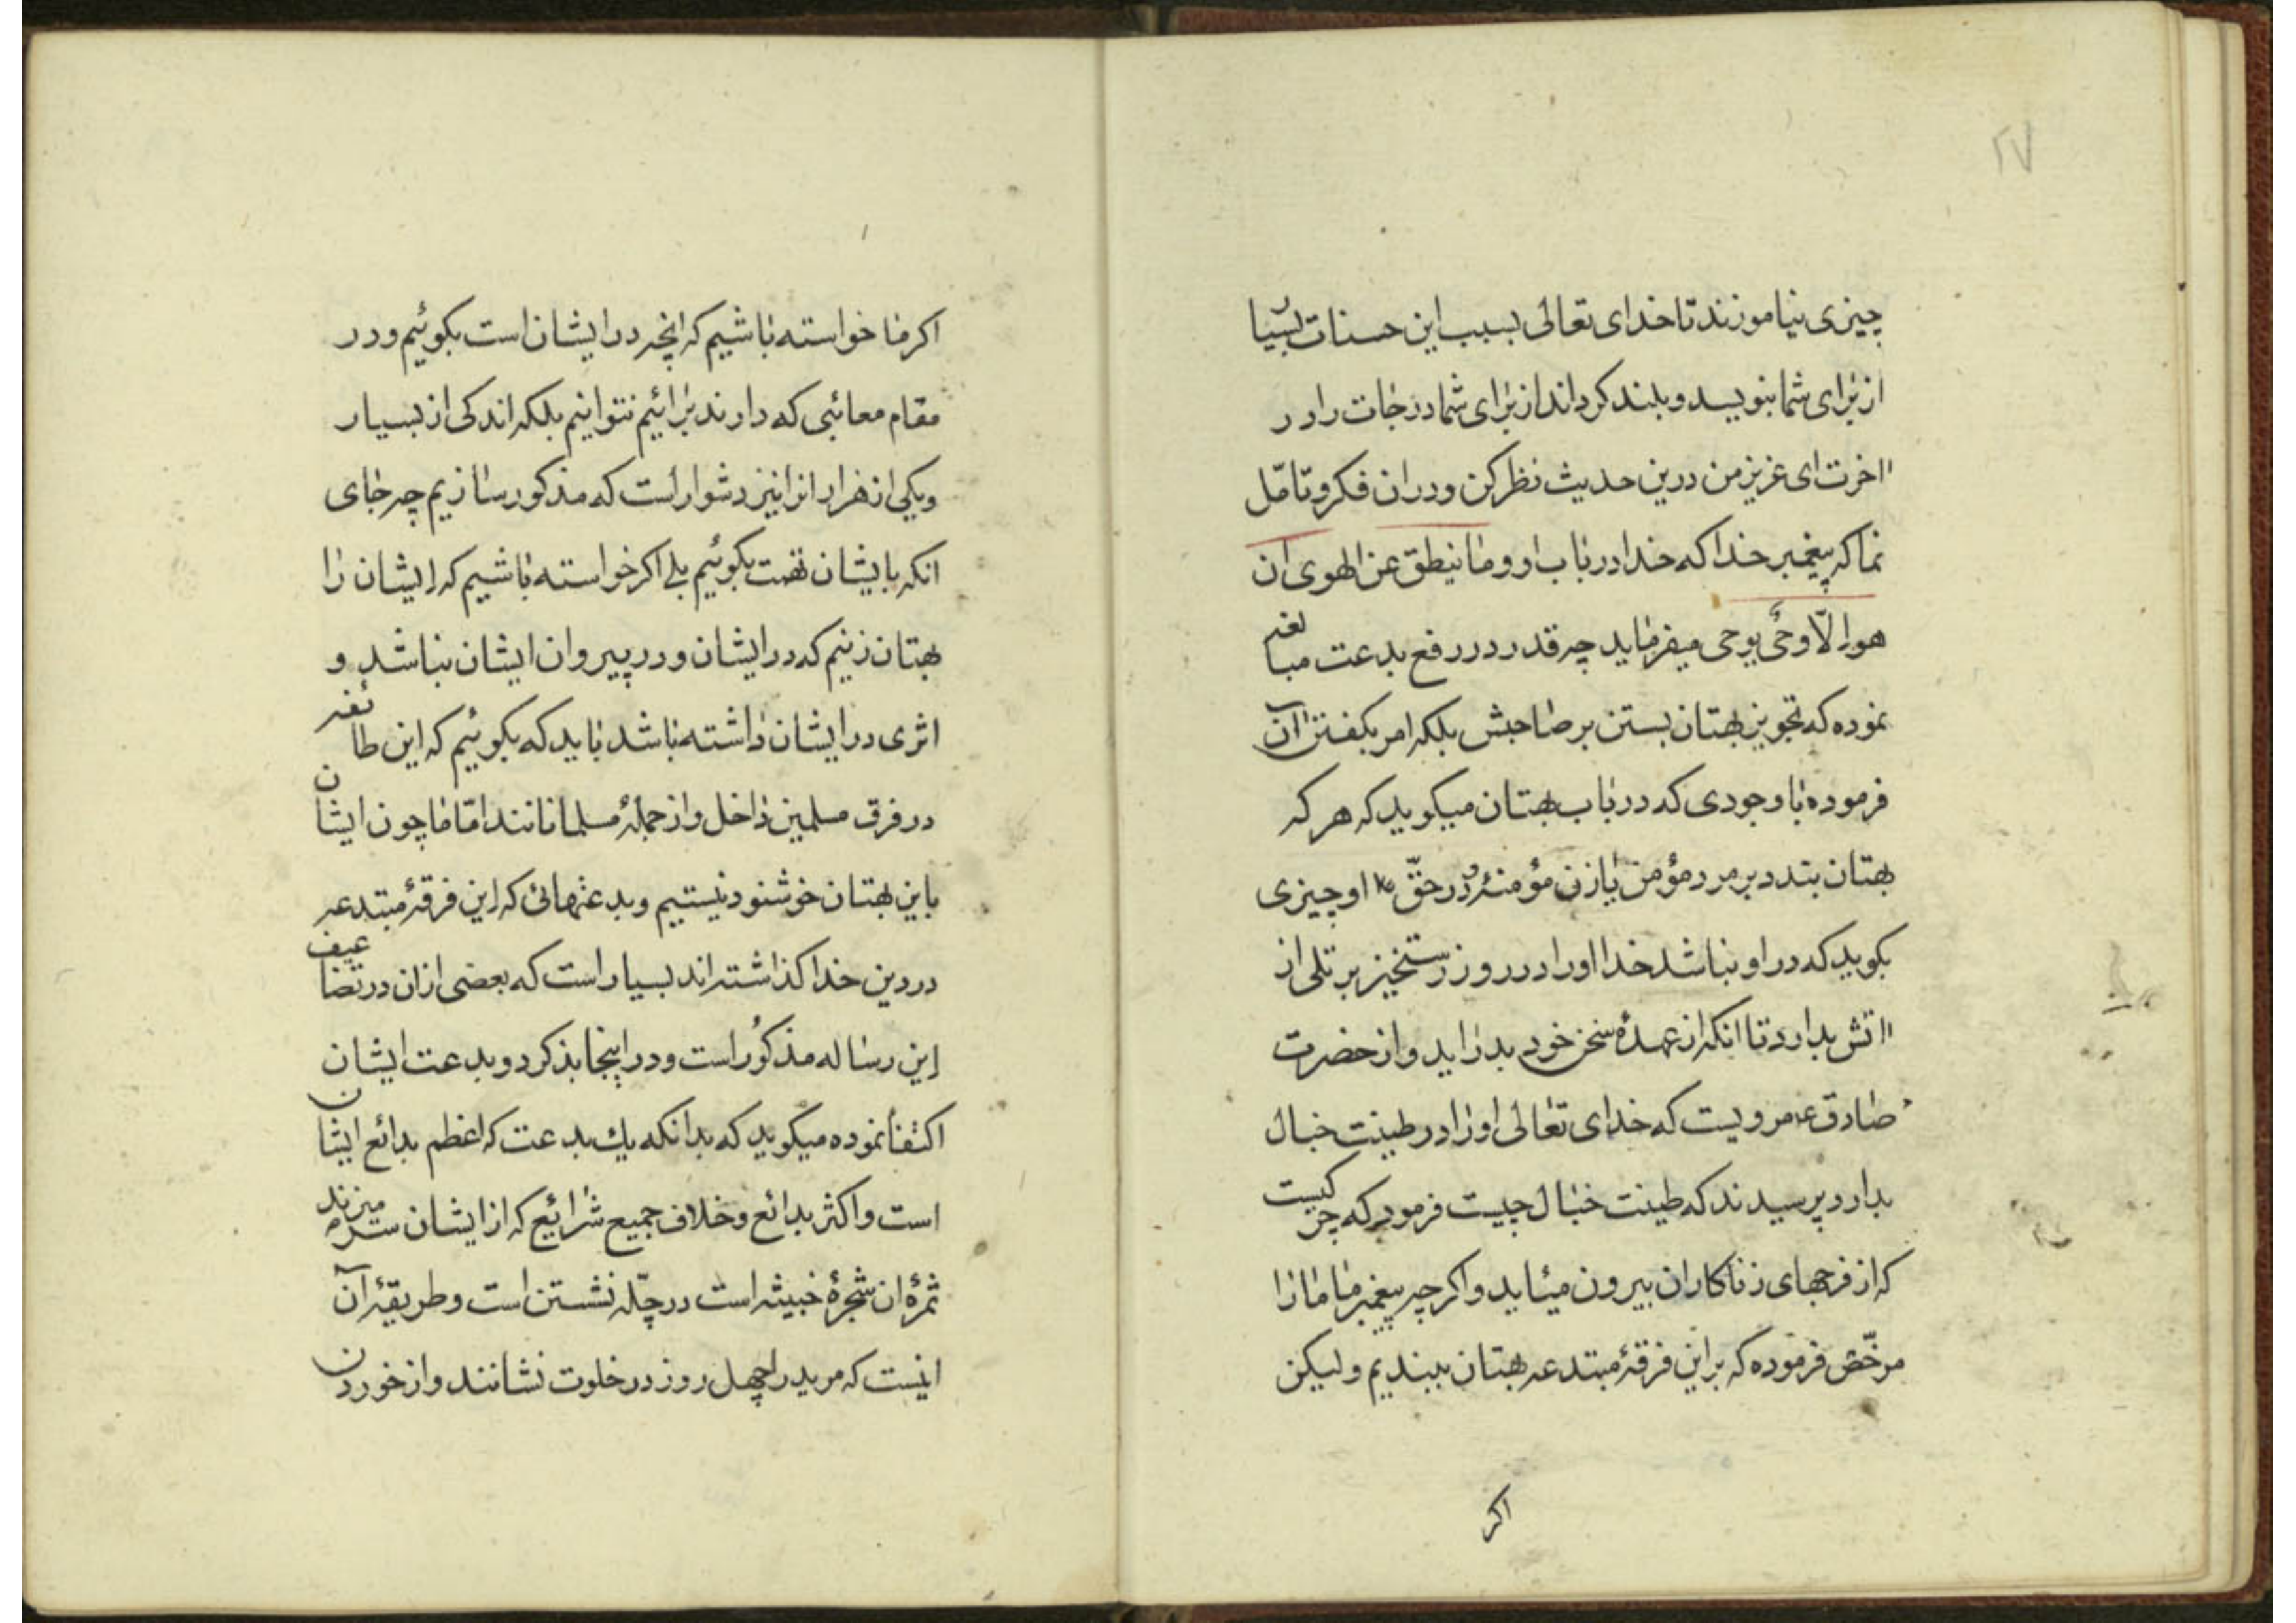 ۲۷
چیزی نیاموزند تا خدای تعالی بسبب این حسنات بسیار
از برای شما بنویسد و بلند کرداند از برای شما درجات را در
اخرت ای عزیز من درین حدیث نظر کن و در ان فکر و تامّل
نما که پیغمبر خدا که خدا در باب او وما ینطق عن الهوی ان
هو الّا وحیٌ یوحی میفرماید چه قدر در رفع بدعت مبالغه
نموده که تجویز بهتان بستن بر صاحبش بلکه امر بکفتن آن
فرموده با وجودی که در باب بهتان میکوید که هر که
بهتان بندد بر مرد مؤمن یا زن مؤمنه و در حقّ او چیزی
بکوید که در او نباشد خدا او را در روز رستخیز بر تلی از
اتش بدارد تا انکه از عهدهٔ سخن خود بدر اید و از حضرت
صادق ع مرویست که خدای تعالی او را در طینت خبال
بدارد پرسیدند که طینت خبال چیست فرمود که چرکیست
که از فرجهای زناکاران بیرون میئاید و اکرچه پیغمبر ما ما را
مرخّص فرموده که بر این فرقهٔ مبتدعه بهتان ببندیم و لیکن
اکر
اکر ما خواسته باشیم که انچه در ایشان است بکوئیم و در
مقام معائبی که دارند برائیم نتوانیم بلکه اندکی از بسیار
و یکی از هزار انرا نیز دشوار است که مذکور سازیم چه جای
انکه بایشان تهمت بکوئیم بلی اکر خواسته باشیم که ایشان را
بهتان زنیم که در ایشان و در پیروان ایشان نباشد و
اثری در ایشان داشته باشد باید که بکوئیم که این طائفه
در فرق مسلمین داخل و از جملهٔ مسلمانانند امّا ما چون ایشان
باین بهتان خوشنود نیستیم و بدعتهائی که این فرقهٔ مبتدعه
در دین خدا کذاشته اند بسیار است که بعضی ازان در تضاعیف
این رساله مذکور است و در اینجا بذکر دو بدعت ایشان
اکتفا نموده میکوید که بدانکه یك بدعت که اعظم بدائع ایشان
است و اکثر بدائع و خلاف جمیع شرائع که از ایشان سر میزند
ثمرهٔ ان شجرهٔ خبیثه است در چلّه نشستن است و طریقهٔ آن
اینست که مرید را چهل روز در خلوت نشانند و از خوردن